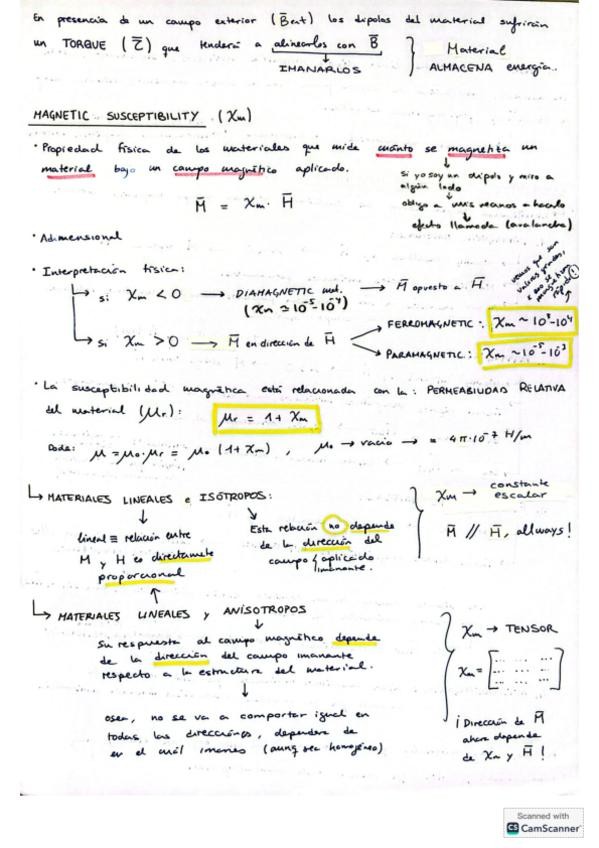 En presencia de un campo exterior (B̄ext) los dipolos del material sufrirán
un TORQUE (τ̄) que tenderá a alinearlos con B̄
IMANARLOS
Material
ALMACENA energía.
MAGNETIC SUSCEPTIBILITY (Xm)
· Propiedad física de los materiales que mide cuánto se magnetiza un
material bajo un campo magnético aplicado.
M̄ = Xm · H̄
si yo soy un dipolo y miro a
algún lado
obligo a mis vecinos a hacerlo
efecto llamada (avalancha)
· Adimensional
· Interpretación física:
si Xm < 0 → DIAMAGNETIC mat. → M̄ opuesto a H̄
(Xm ≃ 10⁻⁵-10⁻⁴)
si Xm > 0 → M̄ en dirección de H̄
FERROMAGNETIC: Xm ~ 10³-10⁴
PARAMAGNETIC: Xm ~ 10⁻⁵-10⁻³
· La susceptibilidad magnética está relacionada con la: PERMEABILIDAD RELATIVA
del material (μr): μr = 1 + Xm
Donde: μ = μ₀·μr = μ₀ (1 + Xm) , μ₀ → vacío → = 4π·10⁻⁷ H/m
↳ MATERIALES LINEALES e ISÓTROPOS:
lineal ≡ relación entre
M y H es directamete
proporcional
Esta relación no depende
de la dirección del
campo aplicado
imanante.
Xm → constante
escalar
M̄ // H̄, allways!
↳ MATERIALES LINEALES y ANISÓTROPOS
Su respuesta al campo magnético depende
de la dirección del campo imanante
respecto a la estructura del material.
osea, no se va a comportar igual en
todas las direcciones, dependera de
en el cuál imanes (aunq sea homogéneo)
Xm → TENSOR
Xm = [... ... ...]
¡Dirección de M̄
ahora depende
de Xm y H̄!
Scanned with
CS CamScanner